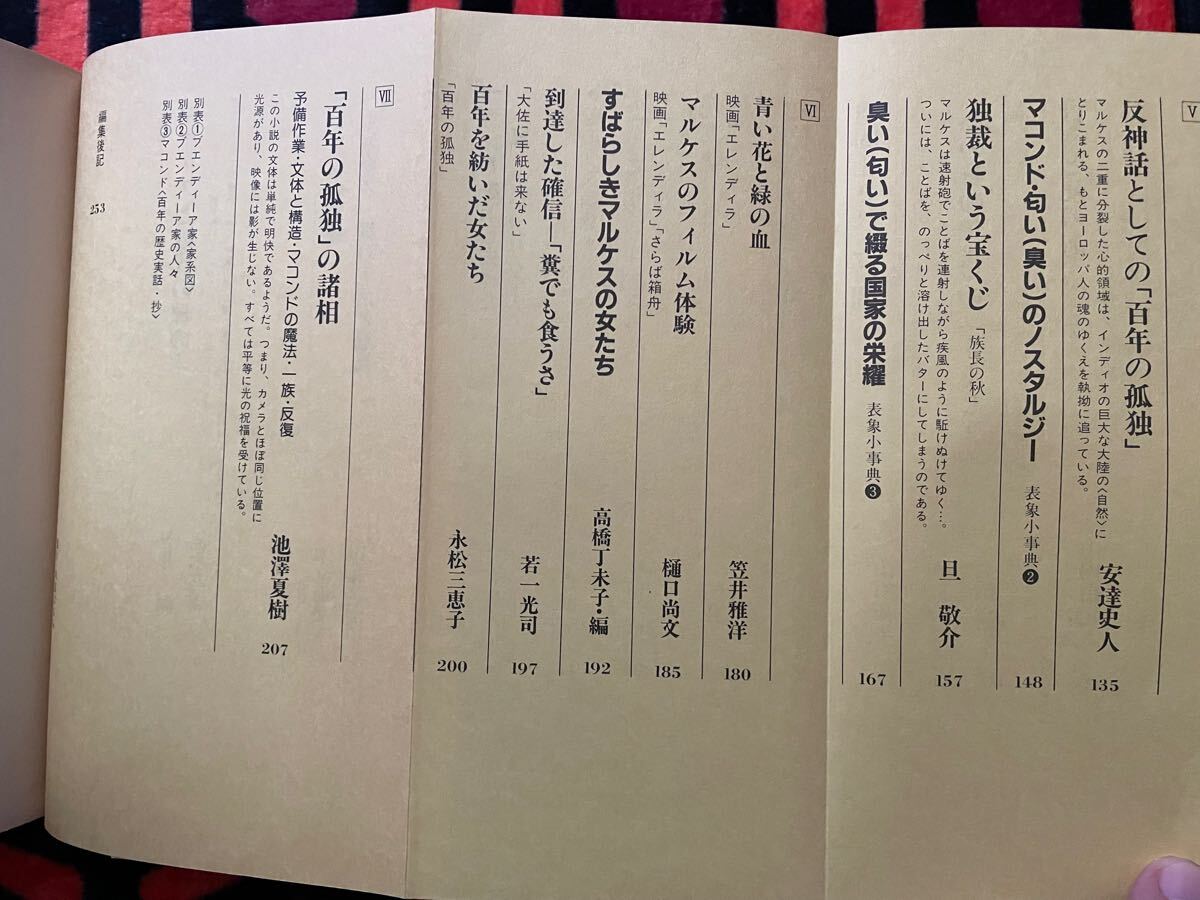 Ⅴ
反神話としての「百年の孤独」
マルケスの二重に分裂した心的領域は、インディオの巨大な大陸の〈自然〉に
とりこまれる、もとヨーロッパ人の魂のゆくえを執拗に追っている。
安達史人
135
マコンド・匂い(臭い)のノスタルジー 表象小事典❷
148
独裁という宝くじ 「族長の秋」
マルケスは速射砲でことばを連射しながら疾風のように駈けぬけてゆく…。
ついには、ことばを、のっぺりと溶け出したバターにしてしまうのである。
旦 敬介
157
臭い(匂い)で綴る国家の栄耀 表象小事典❸
167
Ⅵ
青い花と緑の血
映画「エレンディラ」
笠井雅洋
180
マルケスのフィルム体験
映画「エレンディラ」「さらば箱舟」
樋口尚文
185
すばらしきマルケスの女たち
高橋丁未子・編
192
到達した確信―「糞でも食うさ」
「大佐に手紙は来ない」
若一光司
197
百年を紡いだ女たち
「百年の孤独」
永松三恵子
200
Ⅶ
「百年の孤独」の諸相
予備作業・文体と構造・マコンドの魔法・一族・反復
この小説の文体は単純で明快であるようだ。つまり、カメラとほぼ同じ位置に
光源があり、映像には影が生じない。すべては平等に光の祝福を受けている。
池澤夏樹
207
別表①ブエンディーア家〈家系図〉
別表②ブエンディーア家の人々
別表③マコンド〈百年の歴史実話・抄〉
編集後記
253